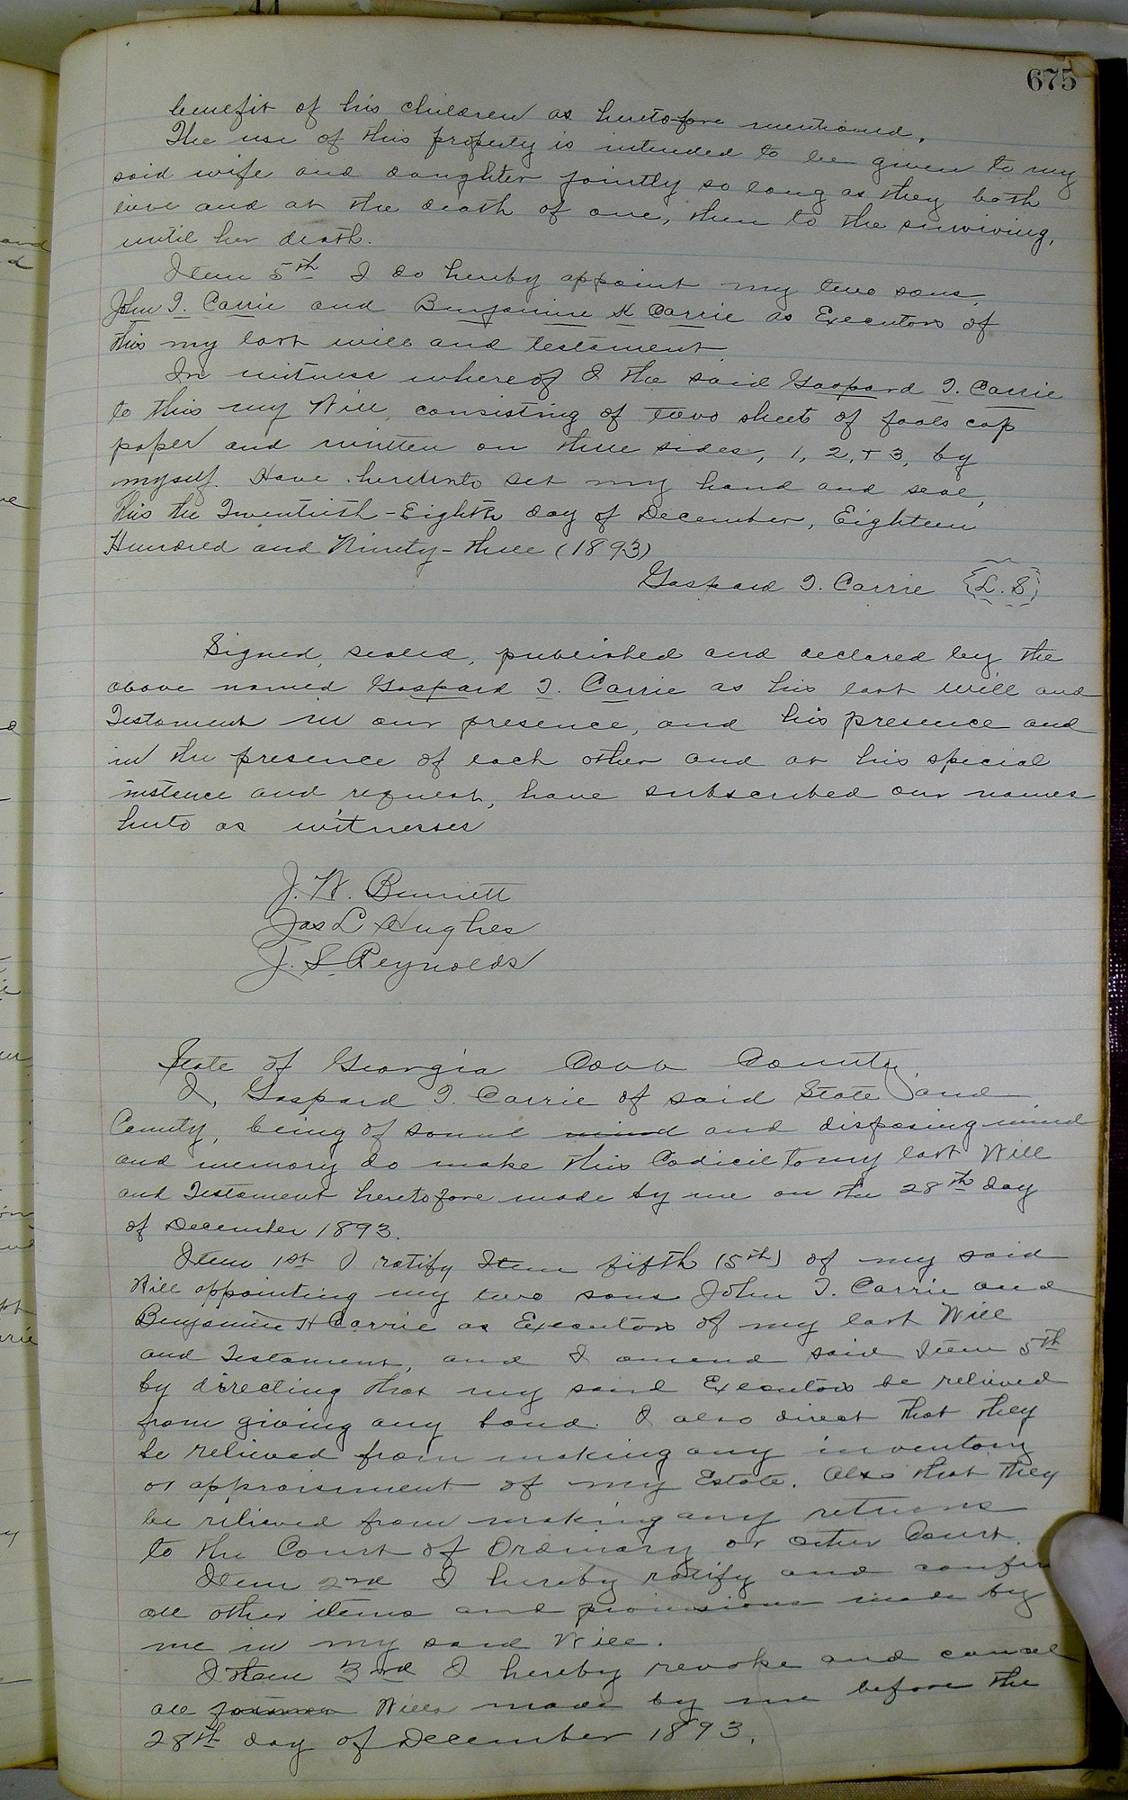 675
benefit of his children as heretofore mentioned.
The use of this property is intended to be given to my
said wife and daughter jointly so long as they both
live and at the death of one, then to the surviving,
until her death.
Item 5th I do hereby appoint my two sons
John T. Carrie and Benjamin H Carrie as Executors of
this my last will and testament.
In witness whereof I the said Gaspard T. Carrie
to this my Will, consisting of two sheets of fools cap
paper and written on three sides, 1, 2, + 3, by
myself. Have hereunto set my hand and seal,
this the Twentieth-Eighth day of December, Eighteen
Hundred and Ninety-three (1893)
Gaspard T. Carrie {L. S}
Signed, sealed, published and declared by the
above named Gaspard T. Carrie as his last will and
Testament in our presence, and his presence and
in the presence of each other and at his special
instence and request, have subscribed our names
huto as witnesses
J. W. Bennett
Jas L Hughes
J. S. Reynolds
State of Georgia Cobb County.
I, Gaspard T. Carrie of said State and
County, being of sound mind and disposing mind
and memory do make this Codicil to my last Will
and Testament heretofore made by me on the 28th day
of December 1893.
Item 1st I ratify Item fifth (5th) of my said
Will appointing my two sons John T. Carrie and
Benjamin H Carrie as Executors of my last Will
and Testament, and I amend said Item 5th
by directing that my said Executors be relieved
from giving any bond. I also direct that they
be relieved from making any inventory
or appraisment of my Estate. Also that they
be relieved from making any returns
to the Court of Ordinary or other Court.
Item 2nd I hereby ratify and confirm
all other items and provisions made by
me in my said Will.
Item 3rd I hereby revoke and cancel
all former Wills made by me before the
28th day of December 1893.